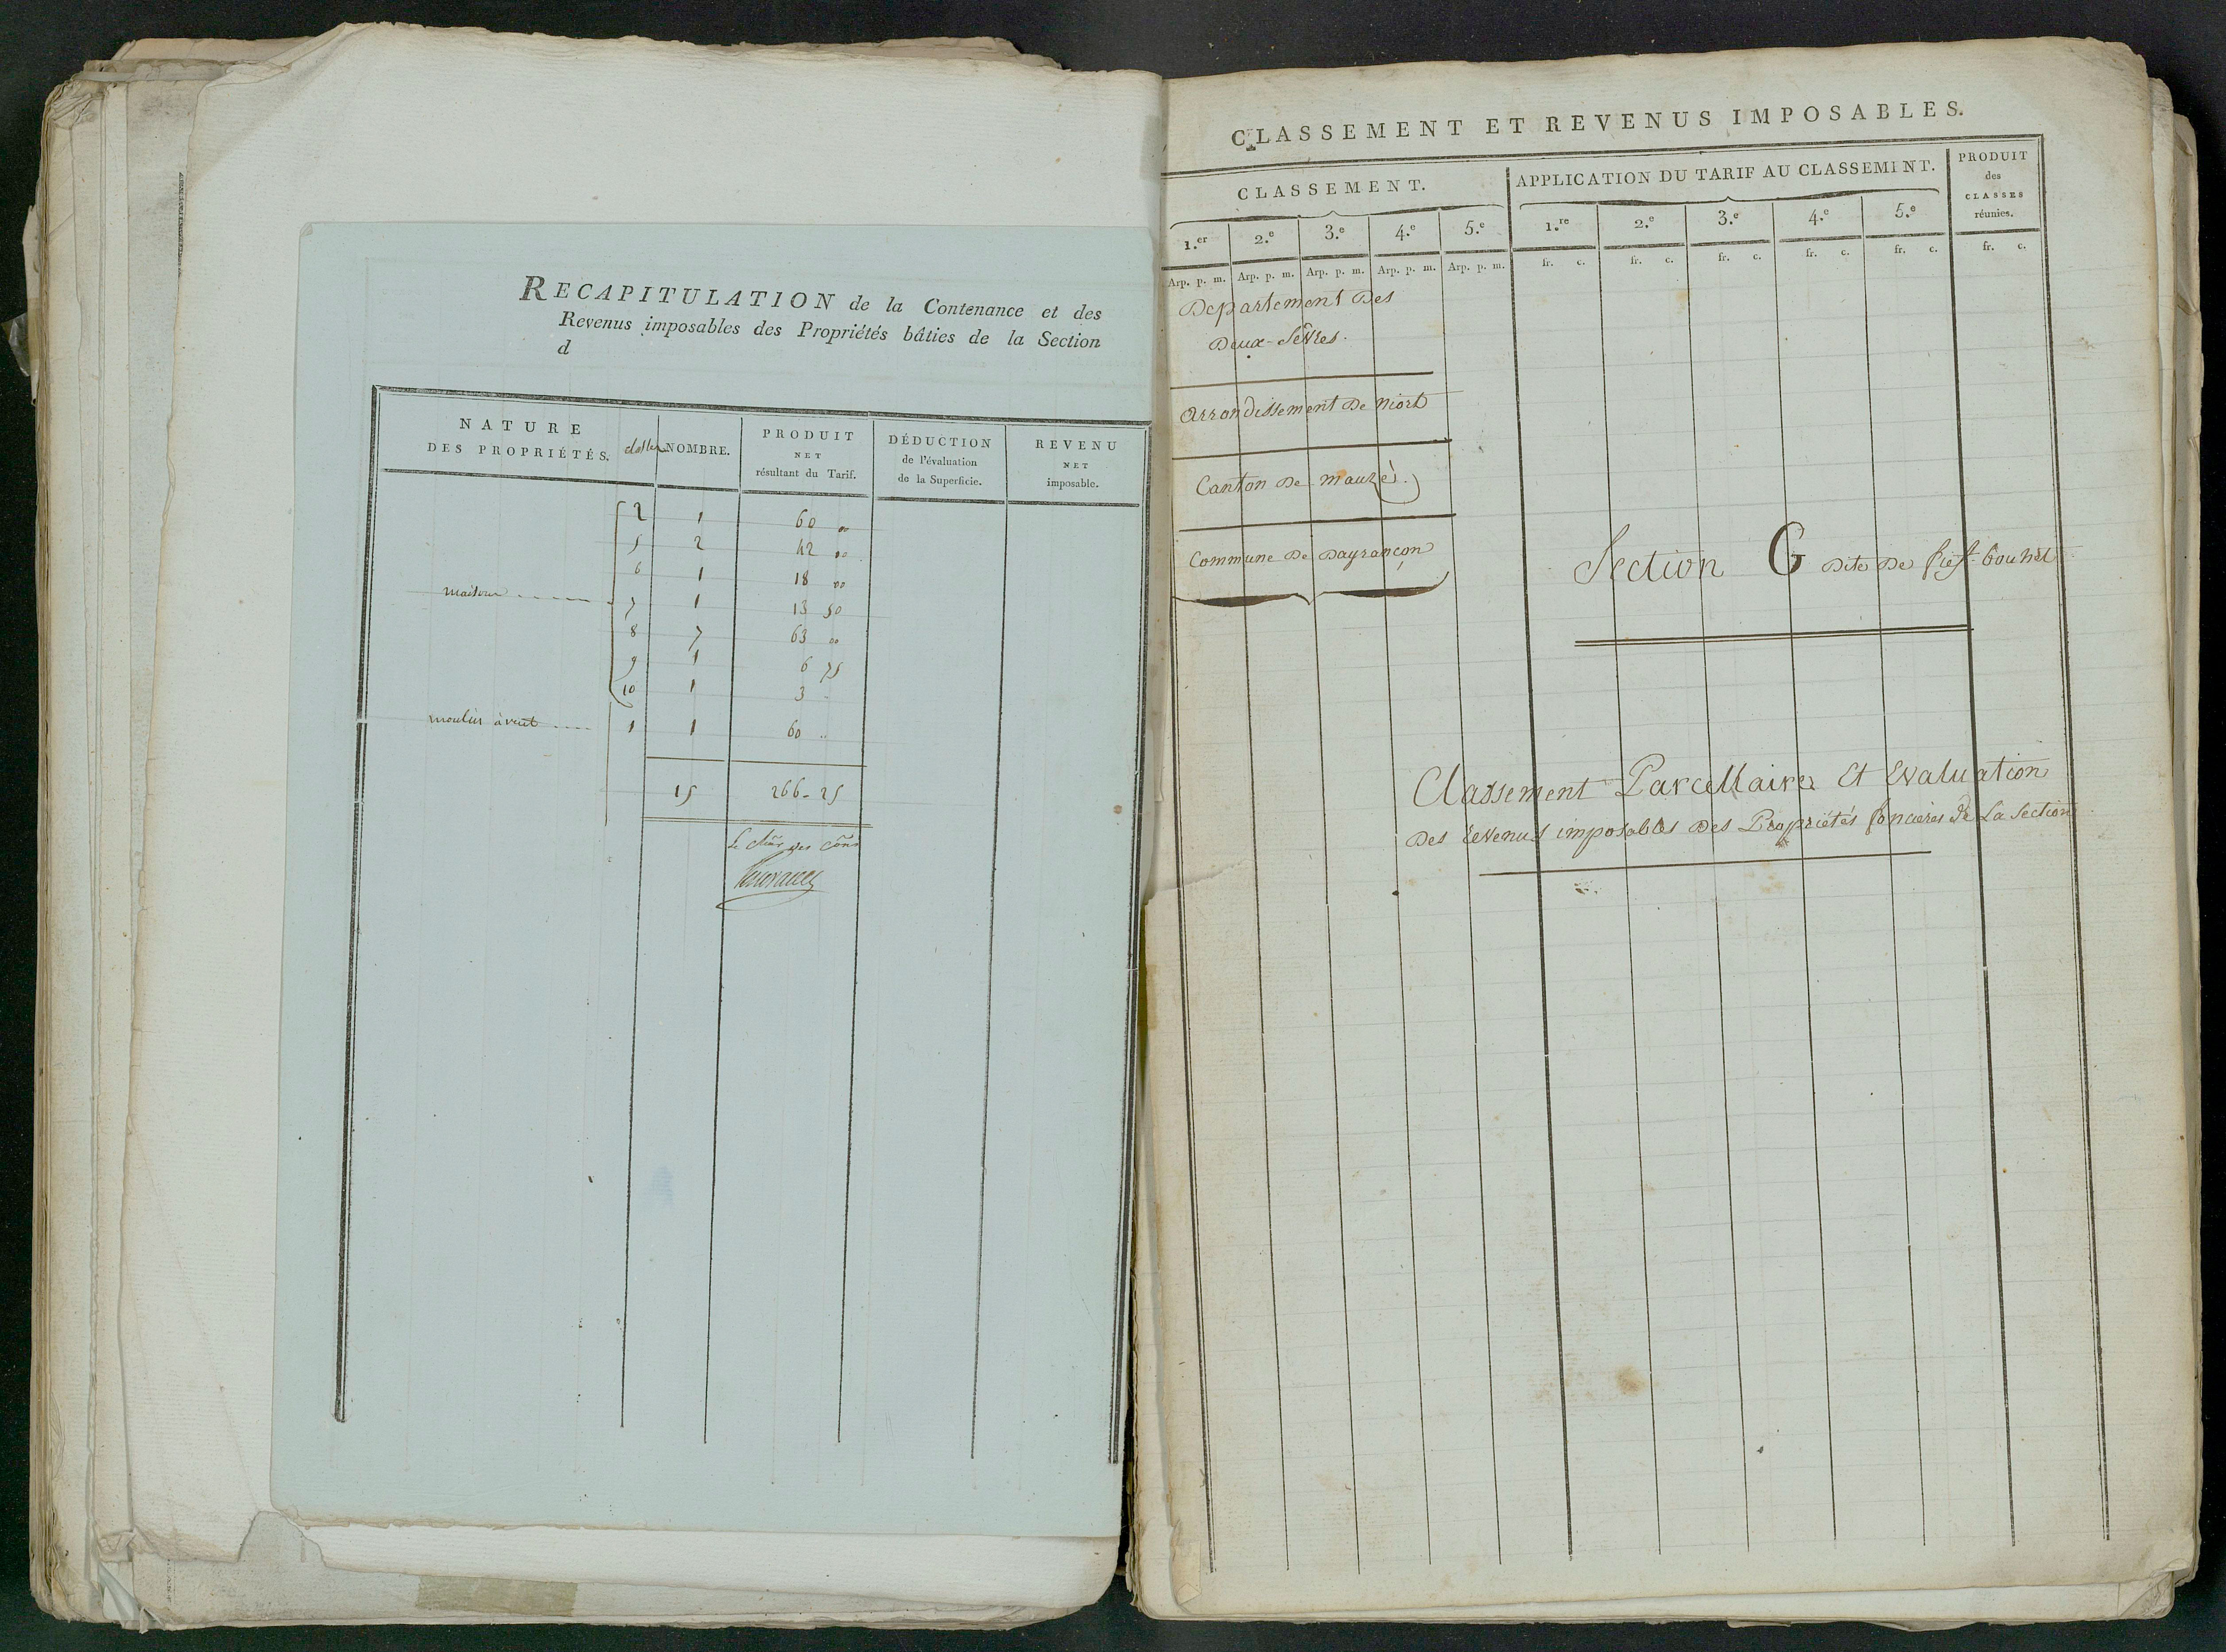 RECAPITULATION de la Contenance et des
Revenus imposables des Propriétés bâties de la Section
d
NATURE
DES PROPRIÉTÉS. classes NOMBRE. PRODUIT NET résultant du Tarif. DÉDUCTION de l'évaluation de la Superficie. REVENU NET imposable.
2 1 60 00
5 2 42 00
6 1 18 00
maisons 7 1 13 50
8 7 63 00
9 1 6 75
10 1 3
moulin à vent 1 1 60
15 266-25
Le des
CLASSEMENT ET REVENUS IMPOSABLES.
CLASSEMENT. APPLICATION DU TARIF AU CLASSEMINT. PRODUIT des CLASSES réunies.
1.er 2.e 3.e 4.e 5.e 1.re 2.e 3.e 4.e 5.e
Arp. p. m. Arp. p. m. Arp. p. m. Arp. p. m. Arp. p. m. fr. c. fr. c. fr. c. fr. c. fr. c. fr. c.
Departement Des
Deux-Sêvres.
Arrondissement De Niort
Canton De Mauzé.
Commune De Dayrançon
Section G Dite De fief-Bouhet
Classement Parcellaire Et Evaluation
Des Revenus imposables Des Propriétés foncières De La Section